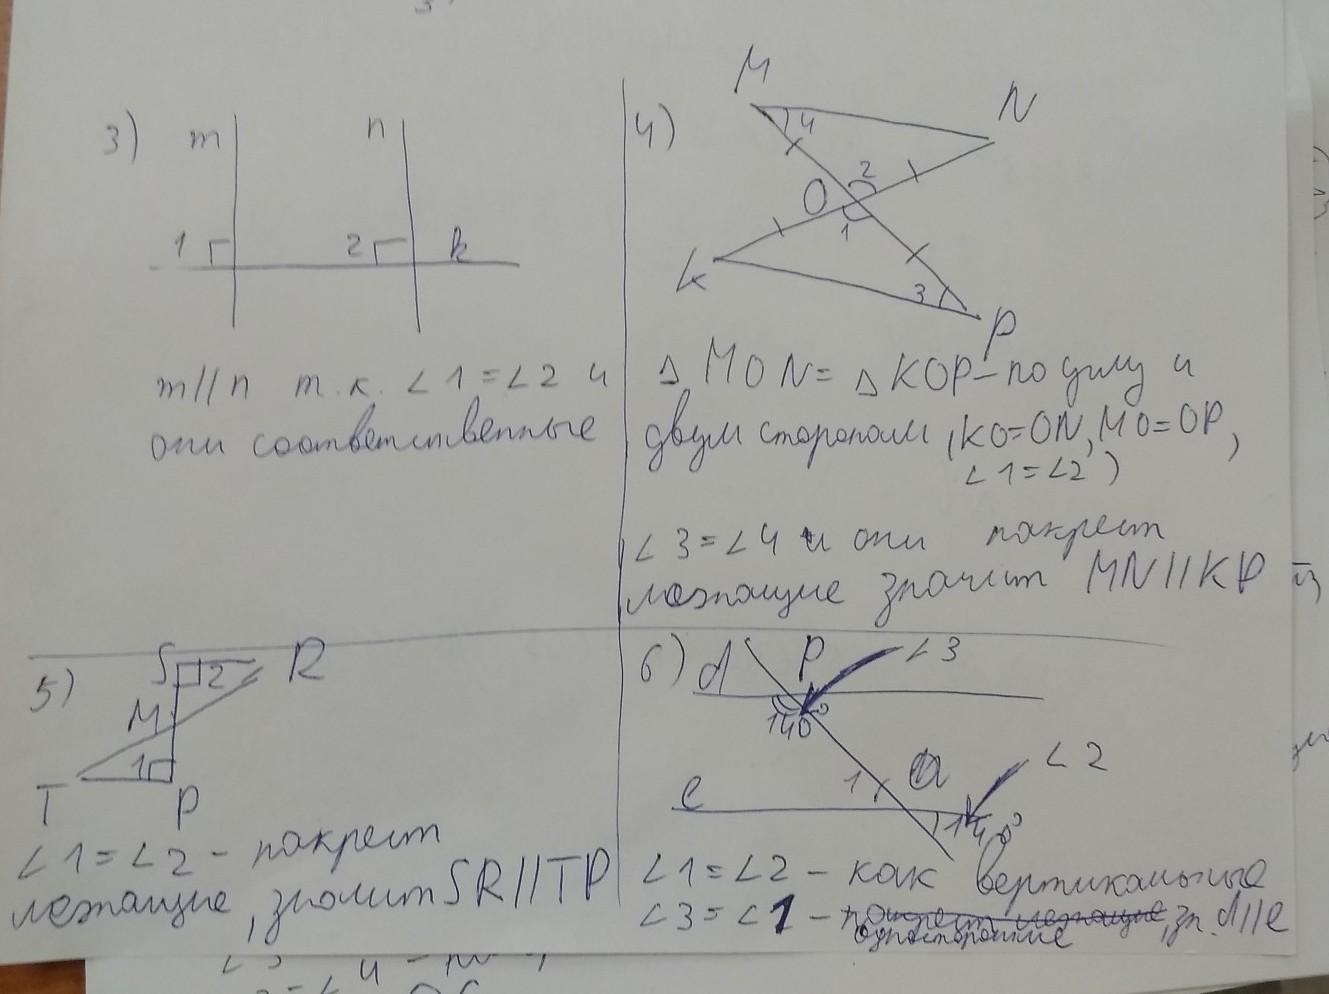 3)
m
n
1
2
k
m//n т.к. ∠1=∠2 и
они соответственные
4)
M
N
4
2
O
1
K
3
P
Δ MON= Δ KOP-по углу и
двум сторонам (KO=ON, MO=OP,
∠1=∠2)
∠3=∠4 и они накрест
лежащие значит MN//KP
5)
S
R
2
M
1
T
P
∠1=∠2 - накрест
лежащие, значит SR//TP
6)
d
P
∠3
140°
1
∠2
e
∠1=∠2 - как вертикальные
∠3=∠1 - накрест лежащие, зн. d//e
односторонние